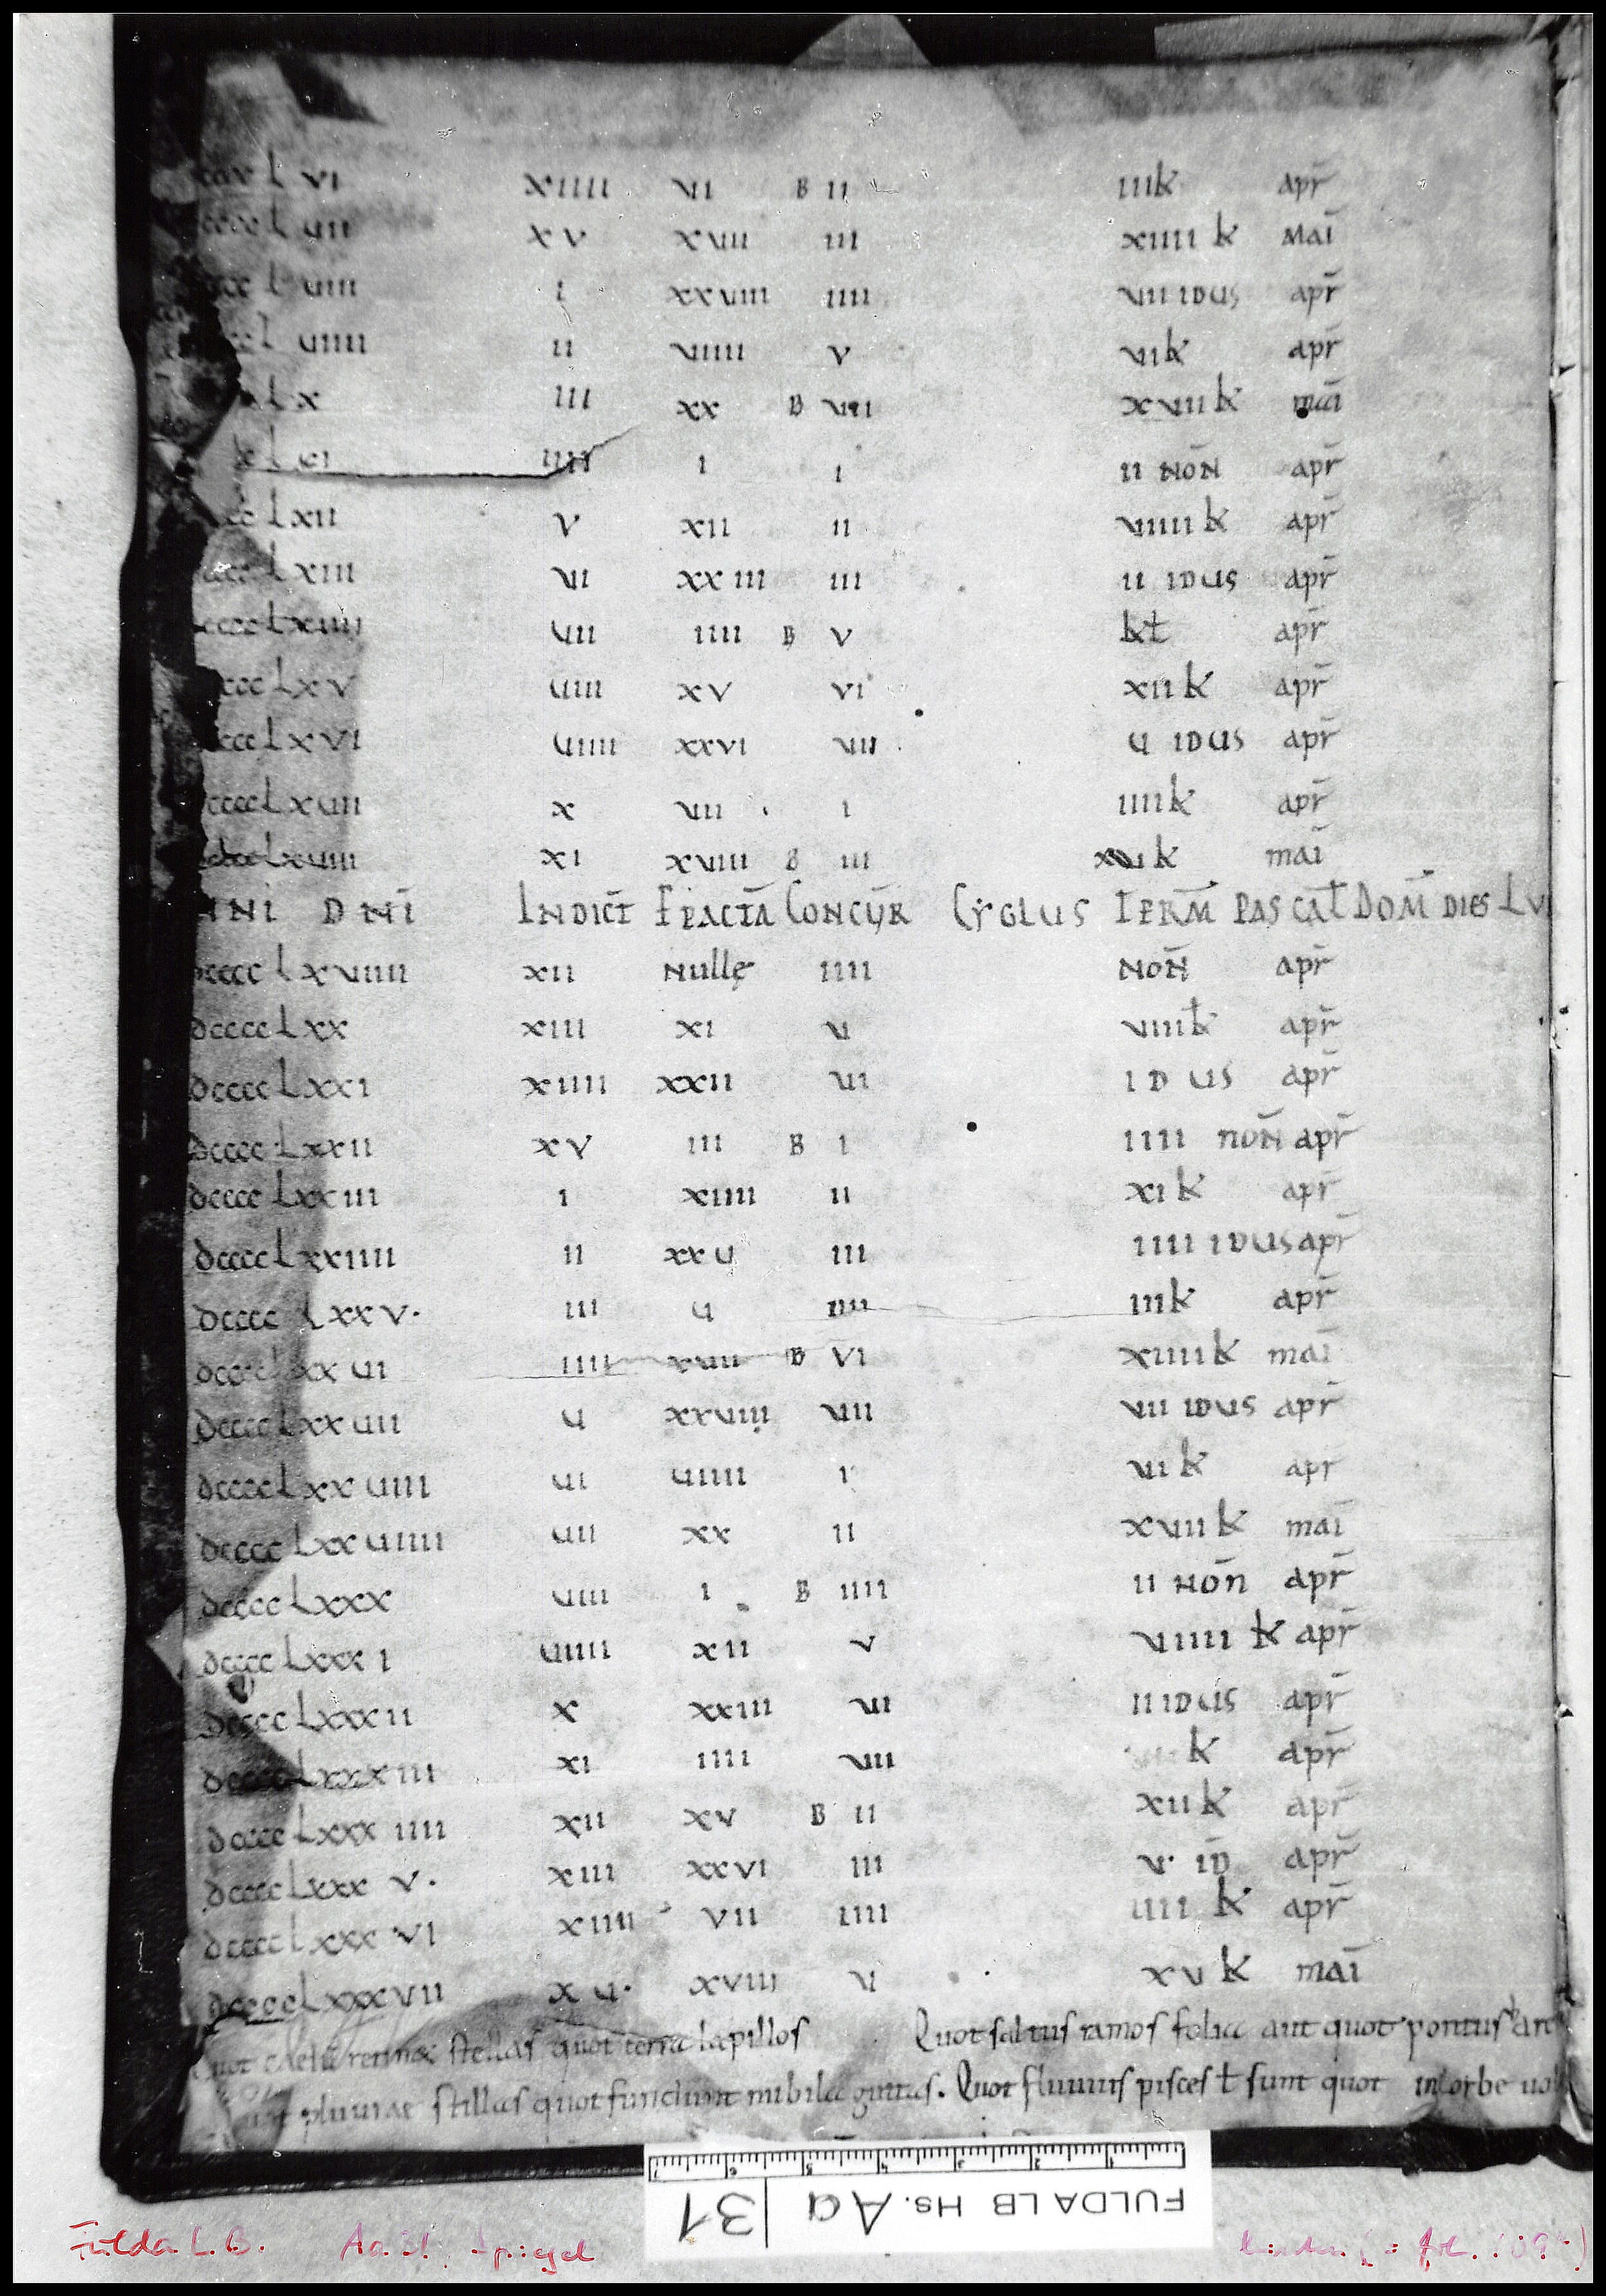 L VI XIIII VI B II IIIK apr̄
cccc L UII XV XVIII III XIIII K MAI
L UIII I XXVIII IIII VII IDUS apr̄
L UIIII II VIIII V VIK apr̄
L X III XX B VII XVIIK mai
L XI IIII I I II NON̄ apr̄
cc LXII V XII II VIIII K apr̄
ccc LXIII VI XXIII III II IDUS apr̄
cccc LXIIII UII IIII B V Kł apr̄
ccc LXV UIII XV VI XIIK apr̄
ccc LXVI UIIII XXVI VII U IDUS apr̄
cccc LXUII X VII I IIIIK apr̄
dcccc LXUIII XI XVIII B III XVK mai
ANNI DNĪ INDICT̄ EPACTĀ CONCŪR CYGLUS TERM̄ PASCAŁ DOM̄ DIES LU
dcccc LXVIIII XII Nullę IIII NON̄ apr̄
dcccc LXX XIII XI U VIIIK apr̄
dcccc LXXI XIIII XXII UI IDUS apr̄
dcccc LXXII XV III B I IIII noN̄ apr̄
dcccc LXXIII I XIIII II XIK apr̄
dcccc LXXIIII II XXU III IIII IDUS apr̄
dcccc LXXV. III U IIII IIIK apr̄
dcccc LXXUI IIII XVII B VI XIIIIK mai
dcccc LXXUII U XXVIII VII VII IDUS apr̄
dcccc LXXUIII UI UIIII I VIK apr
dcccc LXXUIIII UII XX II XVIIK mai
dcccc LXXX UIII I B IIII II NOn̄ apr̄
dcccc LXXXI UIIII XII V VIIII K apr̄
dcccc LXXXII X XXIII VI II IDUS apr̄
dcccc LXXXIII XI IIII VII K apr̄
dcccc LXXXIIII XII XV B II XIIK apr̄
dcccc LXXXV. XIII XXVI III V. ID̄ apr̄
dcccc LXXXVI XIIII VII IIII IIII K apr̄
dcccc LXXXVII XU. XVIII U XVK mai
Quot caelū retinet stellas quot terra lapillos Quot saltus ramos folia aut quot pontus
pluuiae stillas quot fundunt nubila guttas. Quot fluuius pisces ł sunt quot in orbe
FULDA LB Hs. Aa 31
1 2 3 4 5 6 7
Fulda L.B. Aa 31 Spiegel